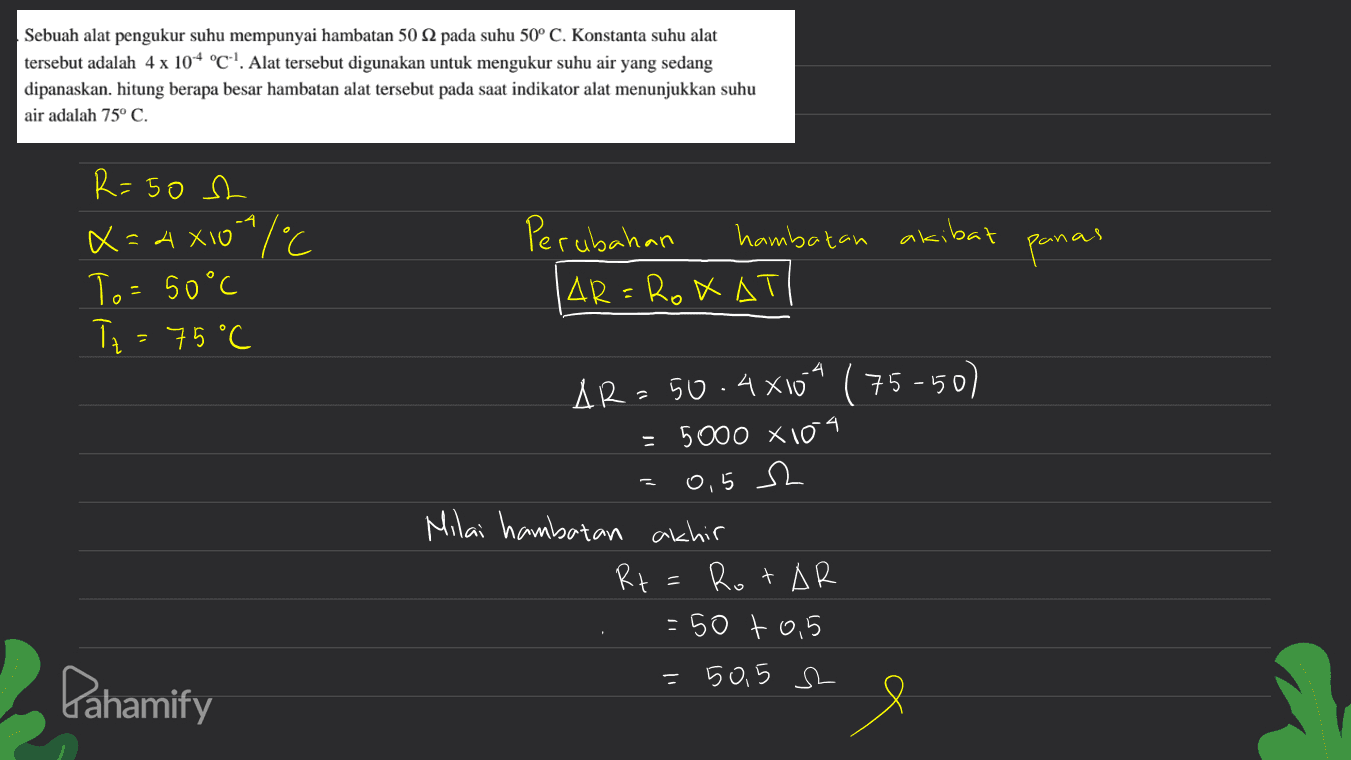 Sebuah alat pengukur suhu mempunyai hambatan 50 Ω pada suhu 50º C. Konstanta suhu alat
tersebut adalah 4 x 10⁻⁴ ºC⁻¹. Alat tersebut digunakan untuk mengukur suhu air yang sedang
dipanaskan. hitung berapa besar hambatan alat tersebut pada saat indikator alat menunjukkan suhu
air adalah 75º C.
R = 50 Ω
α = 4 × 10⁻⁴/°C
T₀ = 50°C
Tₜ = 75 °C
Perubahan hambatan akibat panas
ΔR = R₀ α ΔT
ΔR = 50 . 4 × 10⁻⁴ (75 - 50)
= 5000 × 10⁻⁴
= 0,5 Ω
Nilai hambatan akhir
Rt = R₀ + ΔR
= 50 + 0,5
= 50,5 Ω
Pahamify